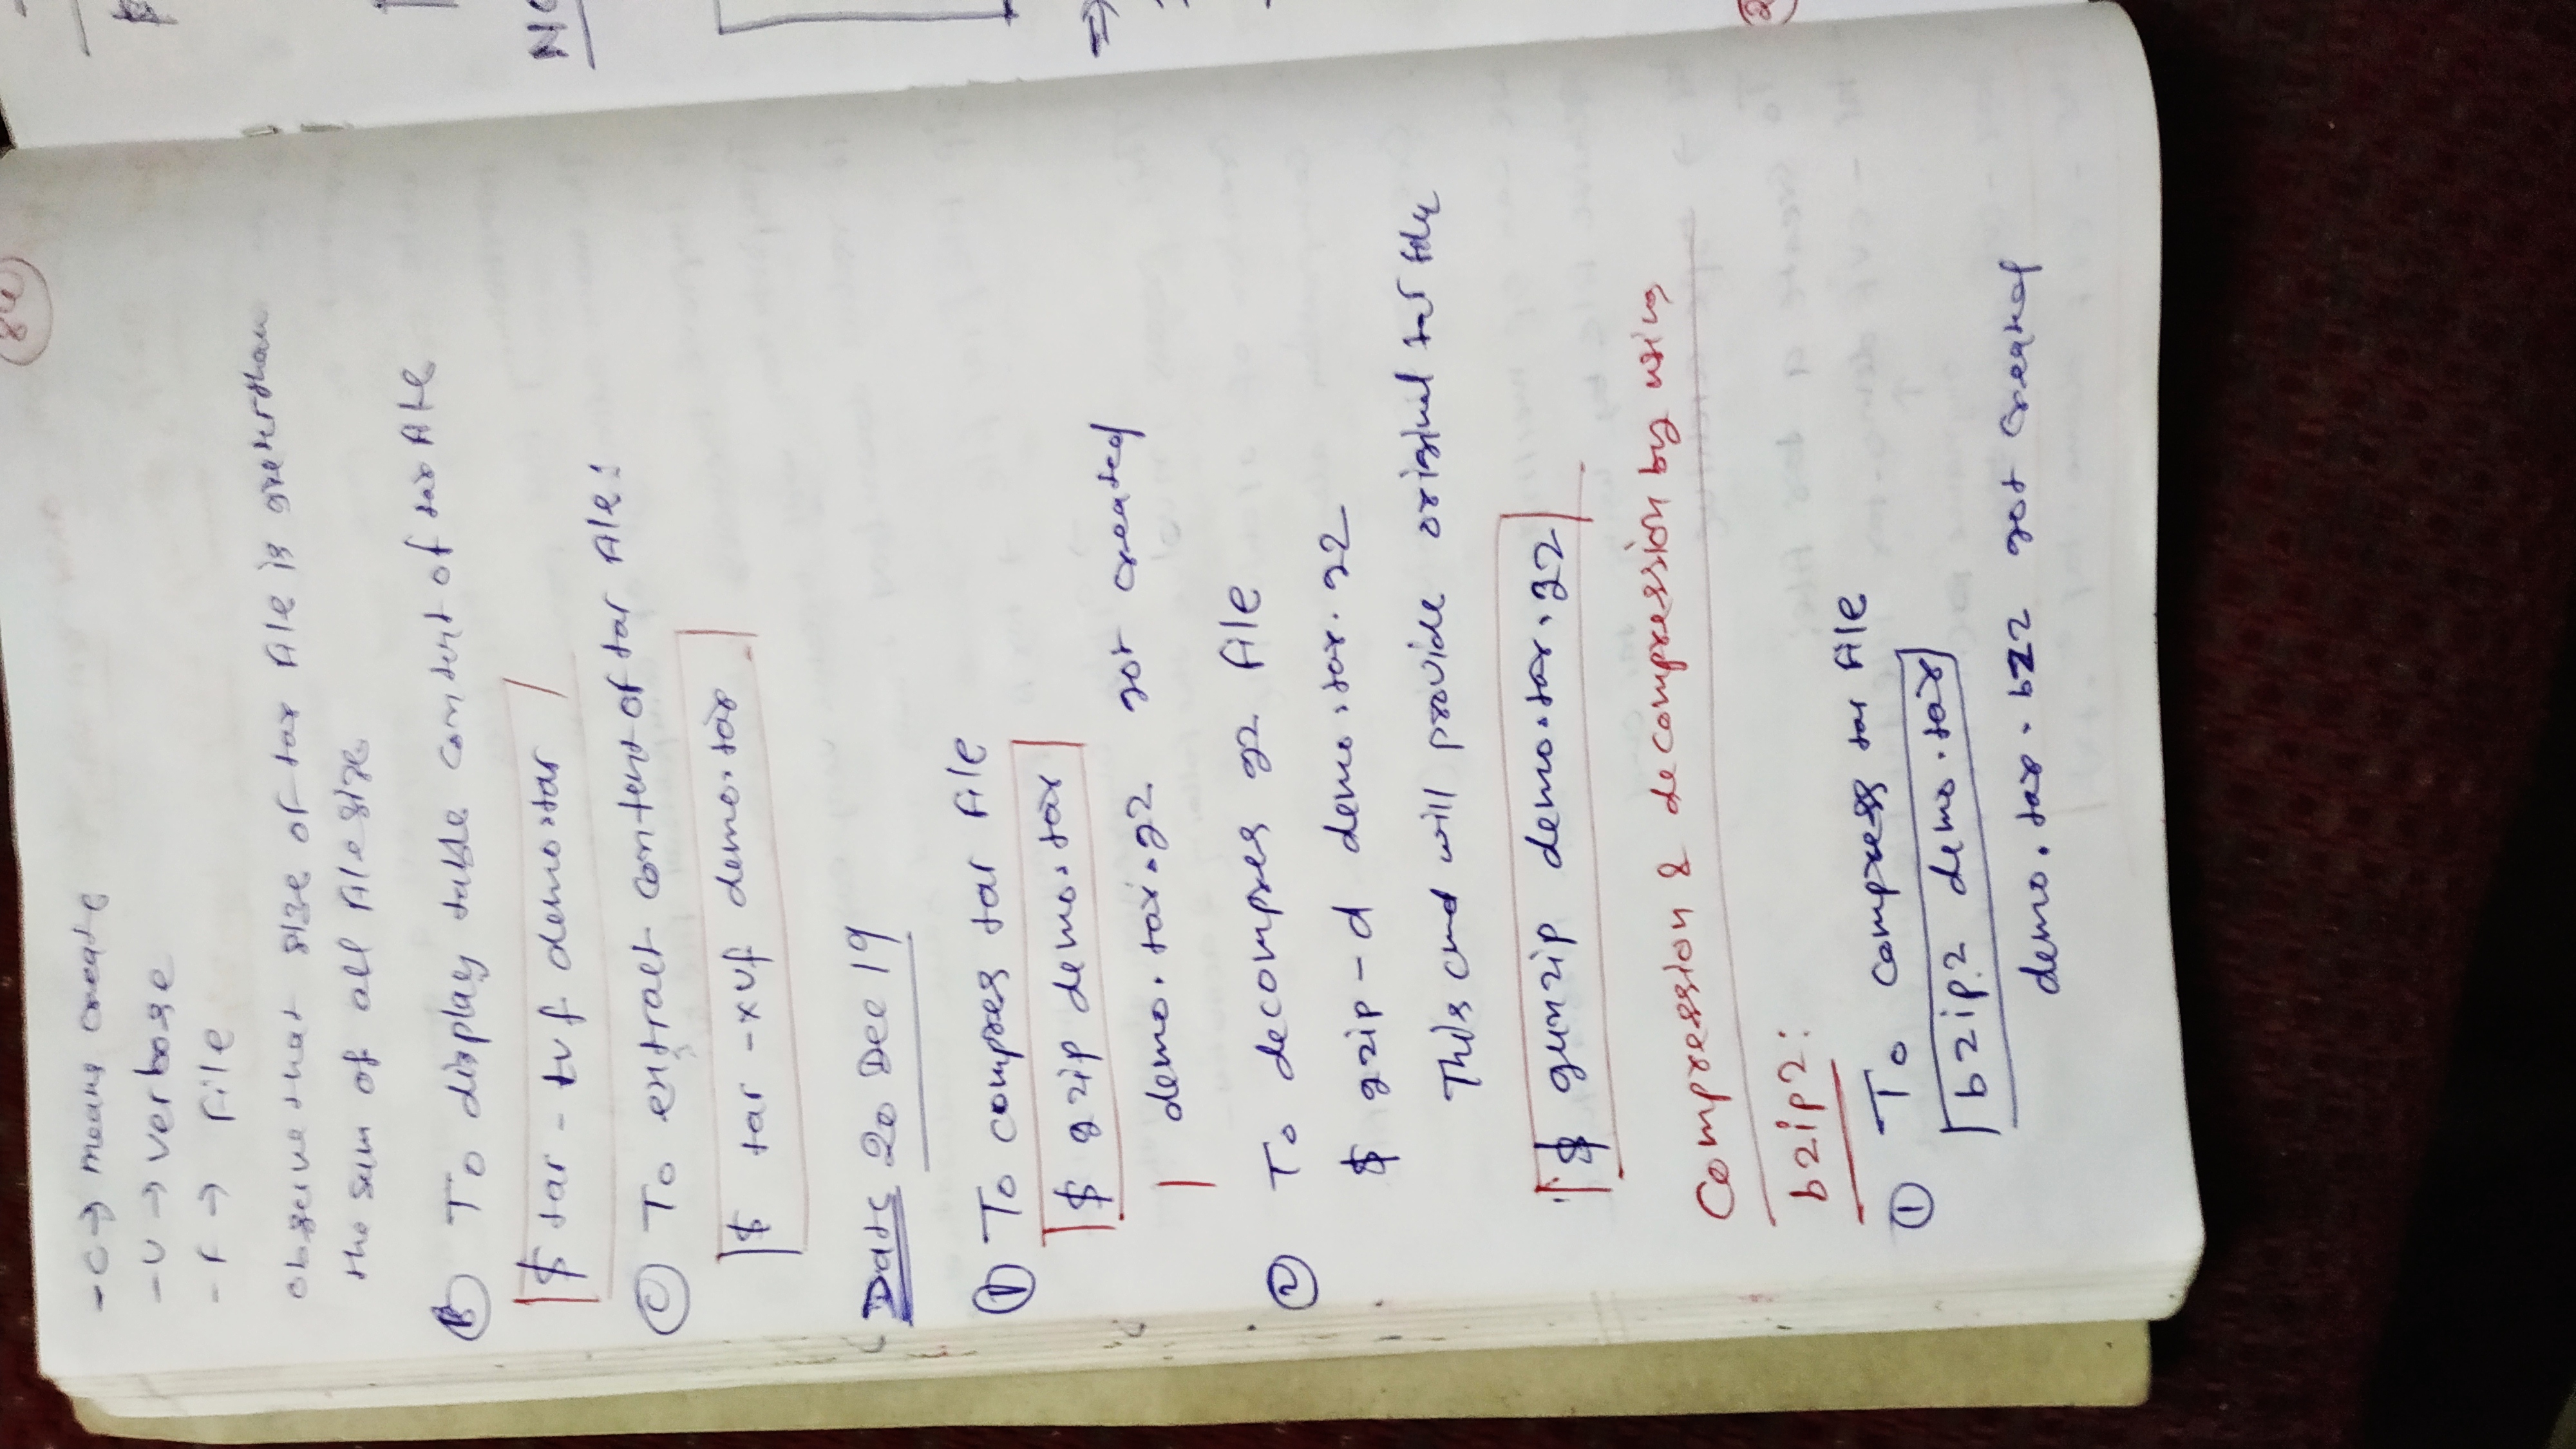 84
-c → means create
-v → verbose
-f → file
observe that size of tar file is greaterthan
the sum of all file size
B To display table content of tar file
$ tar -tvf demo.tar
C To extract content of tar file:
$ tar -xvf demo.tar
Date 20 Dec 19
1 To compres tar file
$ gzip demo.tar
demo.tar.gz got created
2 To decompres gz file
$ gzip -d demo.tar.gz
This cmd will provide original tar
$ gunzip demo.tar.gz
Compression & decompression by using
bzip2:
1 To compress tar file
bzip2 demo.tar
demo.tar.bz2 got created